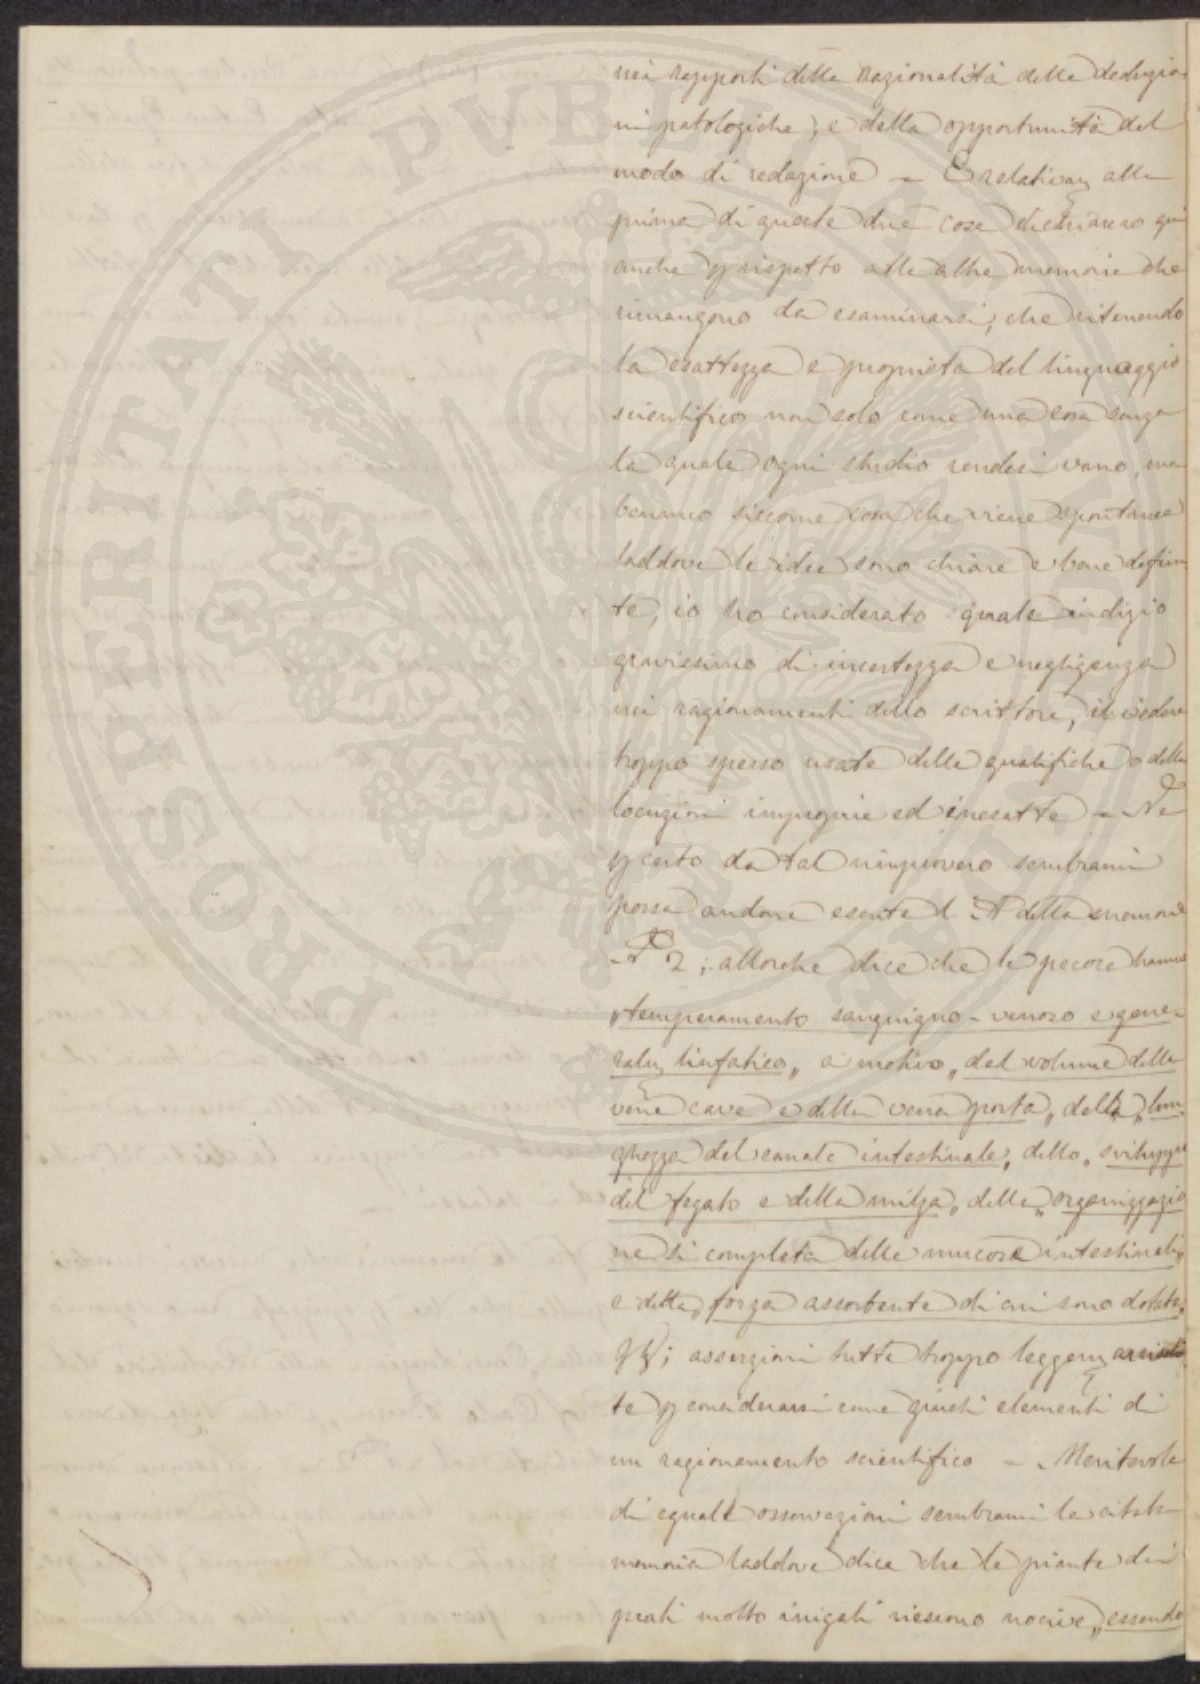 nei rapporti della razionalità delle deduzio-
ni patologiche, e della opportunità del
modo di redazione – E relativam alla
prima di queste due cose dichiarerò qui
anche p rispetto alle altre memorie che
rimangono da esaminarsi, che ritenendo
la esattezza e proprietà del linguaggio
scientifico non solo come una cosa senza
la quale ogni studio rendesi vano, ma
benanco siccome cosa che viene spontanea
laddove le idee sono chiare e bene defini-
te, io ho considerato quale indizio
gravissimo di incertezza e negligenza
nei ragionamenti dello scrittore, il vedere
troppo spesso usate delle qualifiche o delle
locuzioni improprie ed inesatte – Ne
p certo da tal rimprovero sembrami
possa andare esente l'A della memoria
N° 2; allorche dice che le pecore hanno
„temperamento sanguigno-venoso e gene-
ralm linfatico„ a motivo „del volume delle
vene cave e della vena porta„ della „lun-
ghezza del canale intestinale„ dello „sviluppo
del fegato e della milza„ della „organizzazio
ne sì completa delle mucose intestinali„
e della „forza assorbente di cui sono dotate„
asserzioni tutte troppo leggerm
te p considerarsi come giusti elementi di
un ragionamento scientifico – Meritevole
di eguali osservazioni sembrami la citata
memoria laddove dice che le piante dei
prati molto irrigati riescono nocive „essendo
PROSPERITATI PUBLICAE